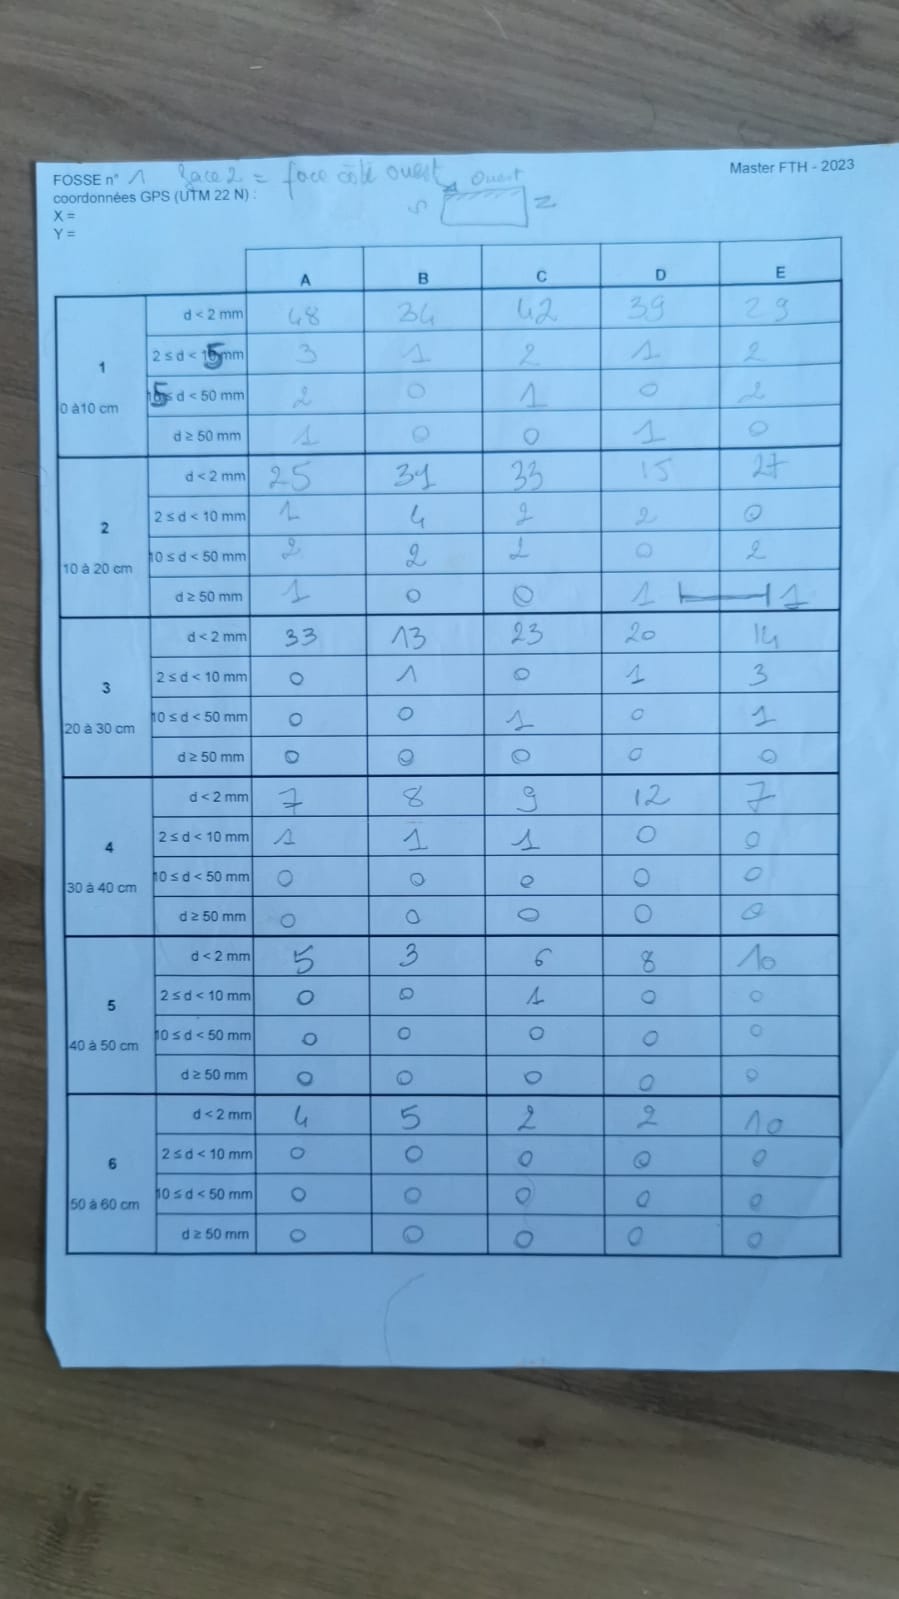 FOSSE n° 1 face 2 = face côté ouest Ouest
Master FTH - 2023
coordonnées GPS (UTM 22 N) :
S N
X =
Y =
A B C D E
1
0 à10 cm
d < 2 mm 48 34 42 39 29
2 ≤ d < 5 mm 3 1 2 1 2
5 ≤ d < 50 mm 2 0 1 0 2
d ≥ 50 mm 1 0 0 1 0
2
10 à 20 cm
d < 2 mm 25 31 33 15 27
2 ≤ d < 10 mm 1 4 2 2 0
10 ≤ d < 50 mm 2 2 2 0 2
d ≥ 50 mm 1 0 0 1 1
3
20 à 30 cm
d < 2 mm 33 13 23 20 14
2 ≤ d < 10 mm 0 1 0 1 3
10 ≤ d < 50 mm 0 0 1 0 1
d ≥ 50 mm 0 0 0 0 0
4
30 à 40 cm
d < 2 mm 7 8 9 12 7
2 ≤ d < 10 mm 1 1 1 0 0
10 ≤ d < 50 mm 0 0 0 0 0
d ≥ 50 mm 0 0 0 0 0
5
40 à 50 cm
d < 2 mm 5 3 6 8 10
2 ≤ d < 10 mm 0 0 1 0 0
10 ≤ d < 50 mm 0 0 0 0 0
d ≥ 50 mm 0 0 0 0 0
6
50 à 60 cm
d < 2 mm 4 5 2 2 10
2 ≤ d < 10 mm 0 0 0 0 0
10 ≤ d < 50 mm 0 0 0 0 0
d ≥ 50 mm 0 0 0 0 0